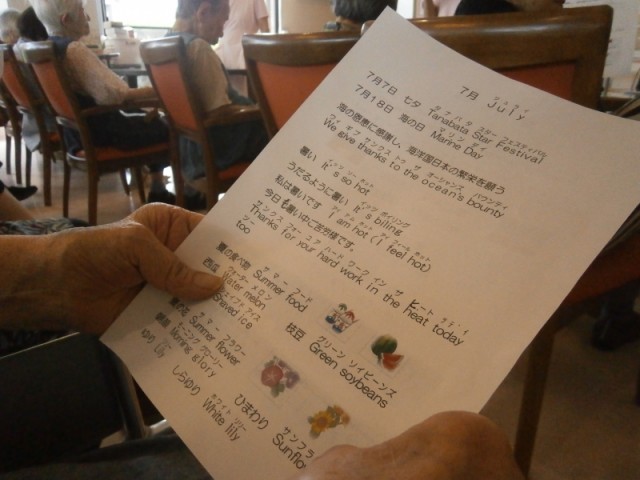 7月 July
7月7日 七夕 Tanabata Star Festival
7月18日 海の日 Marine Day
海の恩恵に感謝し、海洋国日本の繁栄を願う
We give thanks to the ocean's bounty
暑い It's so hot
うだるように暑い It's biling
私は暑いです I am hot (I feel hot)
今日も暑い中ご苦労様です。
Thanks for your hard work in the heat today
too
夏の食べ物 Summer food
西瓜 Water melon
枝豆 Green soybeans
Shaved ice
Summer flower
Morning glory
ゆり Lily
ひまわり Sunflo
しらゆり White lily